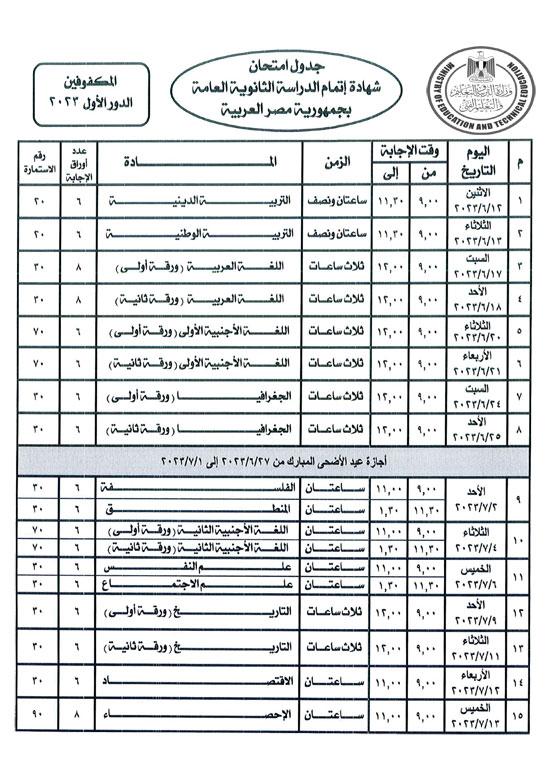 جدول امتحان
شهادة إتمام الدراسة الثانوية العامة
بجمهورية مصر العربية
المكفوفين
الدور الأول ٢٠٢٣
وزارة التربية والتعليم
والتعليم الفني
MINISTRY OF EDUCATION AND TECHNICAL EDUCATION
م اليوم التاريخ وقت الإجابة من إلى الزمن المادة عدد أوراق الإجابة رقم الاستمارة
١ الاثنين ٢٠٢٣/٦/١٢ ٩,٠٠ ١١,٣٠ ساعتان ونصف التربية الدينية ٦ ٢٠
٢ الثلاثاء ٢٠٢٣/٦/١٣ ٩,٠٠ ١١,٣٠ ساعتان ونصف التربية الوطنية ٦ ٢٠
٣ السبت ٢٠٢٣/٦/١٧ ٩,٠٠ ١٢,٠٠ ثلاث ساعات اللغة العربية (ورقة أولى) ٨ ٣٠
٤ الأحد ٢٠٢٣/٦/١٨ ٩,٠٠ ١٢,٠٠ ثلاث ساعات اللغة العربية (ورقة ثانية) ٨ ٣٠
٥ الثلاثاء ٢٠٢٣/٦/٢٠ ٩,٠٠ ١٢,٠٠ ثلاث ساعات اللغة الأجنبية الأولى (ورقة أولى) ٦ ٧٠
٦ الأربعاء ٢٠٢٣/٦/٢١ ٩,٠٠ ١٢,٠٠ ثلاث ساعات اللغة الأجنبية الأولى (ورقة ثانية) ٦ ٧٠
٧ السبت ٢٠٢٣/٦/٢٤ ٩,٠٠ ١٢,٠٠ ثلاث ساعات الجغرافيا (ورقة أولى) ٦ ٣٠
٨ الأحد ٢٠٢٣/٦/٢٥ ٩,٠٠ ١٢,٠٠ ثلاث ساعات الجغرافيا (ورقة ثانية) ٦ ٣٠
أجازة عيد الأضحى المبارك من ٢٠٢٣/٦/٢٧ إلى ٢٠٢٣/٧/١
٩ الأحد ٢٠٢٣/٧/٢ ٩,٠٠ ١١,٠٠ ساعتان الفلسفة ٦ ٣٠
١١,٣٠ ١,٣٠ ساعتان المنطق ٦ ٣٠
١٠ الثلاثاء ٢٠٢٣/٧/٤ ٩,٠٠ ١١,٠٠ ساعتان اللغة الأجنبية الثانية (ورقة أولى) ٦ ٧٠
١١,٣٠ ١,٣٠ ساعتان اللغة الأجنبية الثانية (ورقة ثانية) ٦ ٧٠
١١ الخميس ٢٠٢٣/٧/٦ ٩,٠٠ ١١,٠٠ ساعتان علم النفس ٦ ٣٠
١١,٣٠ ١,٣٠ ساعتان علم الاجتماع ٦ ٣٠
١٢ الأحد ٢٠٢٣/٧/٩ ٩,٠٠ ١٢,٠٠ ثلاث ساعات التاريخ (ورقة أولى) ٦ ٣٠
١٣ الثلاثاء ٢٠٢٣/٧/١١ ٩,٠٠ ١٢,٠٠ ثلاث ساعات التاريخ (ورقة ثانية) ٦ ٣٠
١٤ الأربعاء ٢٠٢٣/٧/١٢ ٩,٠٠ ١١,٠٠ ساعتان الاقتصاد ٦ ٣٠
١٥ الخميس ٢٠٢٣/٧/١٣ ٩,٠٠ ١١,٠٠ ساعتان الإحصاء ٨ ٩٠